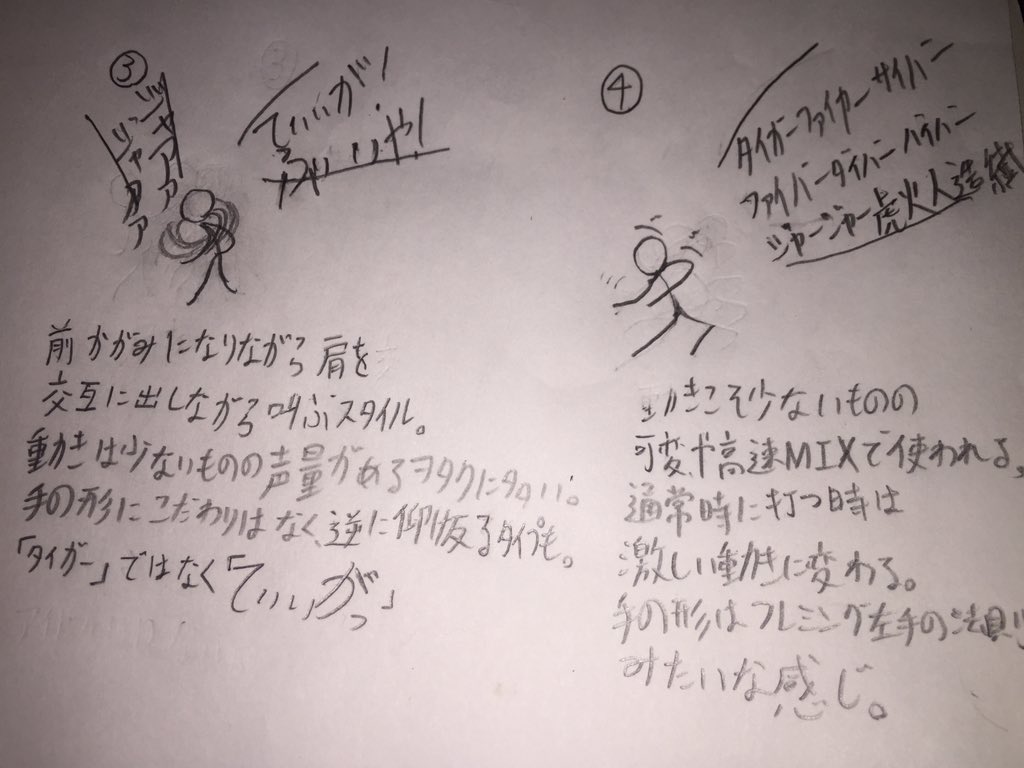 ③
ジャアアア
ジャアアア
てぃいが!
ふぁいいや!
前かがみになりながら肩を
交互に出しながら叫ぶスタイル。
動きは少ないものの声量があるヲタクに多い。
手の形にこだわりはなく、逆に仰反るタイプも。
「タイガー」ではなく「てぃぃがっ」
④
タイガーファイヤーサイバー
ファイバーダイバーバイバー
ジャージャー虎火人造繊
動きこそ少ないものの
可変や高速MIXで使われる。
通常時に打つ時は
激しい動きに変わる。
手の形はフレミング左手の法則
みたいな感じ。